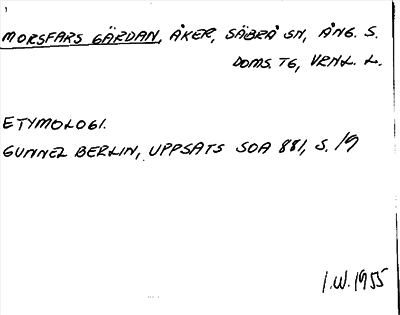 1
MORSFARS GÄRDAN, ÅKER, SÄBRÅ SN, ÅNG. S.
DOMS. TG, VRNL. L.
ETYMOLOGI.
GUNNEL BERLIN, UPPSATS SOA 881, S. 19
I.W. 1955